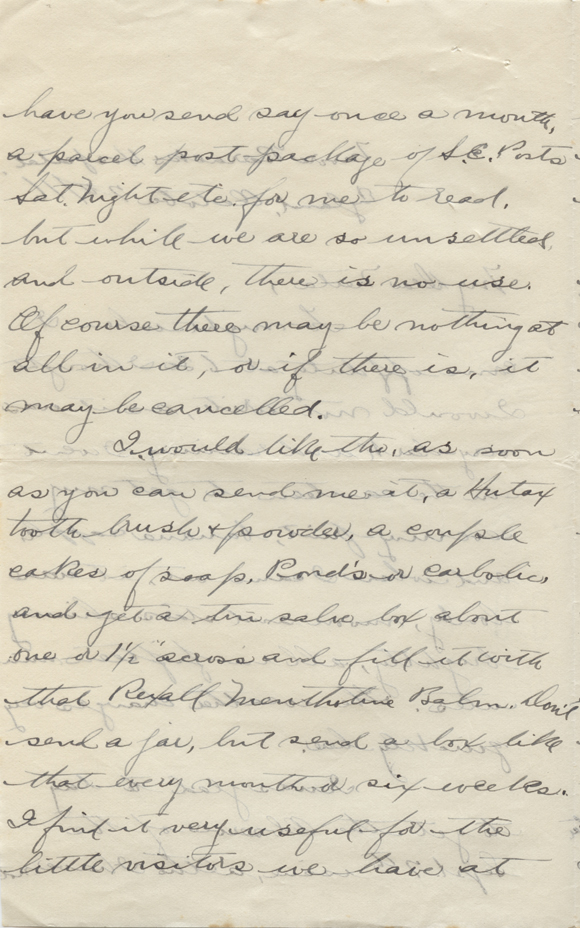 have you send say once a month,
a parcel post package of S.E. Posts
Sat. Night etc. for me to read.
but while we are so unsettled,
and outside, there is no use.
Of course there may be nothing at
all in it, or if there is, it
may be cancelled.
I would like tho, as soon
as you can send me it, a Hutax
tooth brush & powder, a couple
cakes of soap, Pond's or carbolic,
and get a tin salve box about
one or 1½" across and fill it with
that Rexall Mentholine Balm. Don't
send a jar, but send a box like
that every month or six weeks.
I find it very useful for the
little visitors we have at